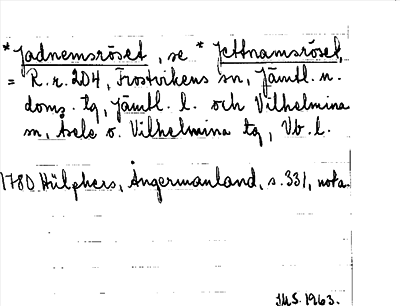 *Jadnemsröset, se *Jettnamsröset,
= R.r. 204, Frostvikens sn, Jämtl. n.
doms. tg, Jämtl. l. och Vilhelmina
sn, Åsele o. Vilhelmina tg, Vb. l.
1780 Hülphers, Ångermanland, s. 331, nota.
IMS. 1963.